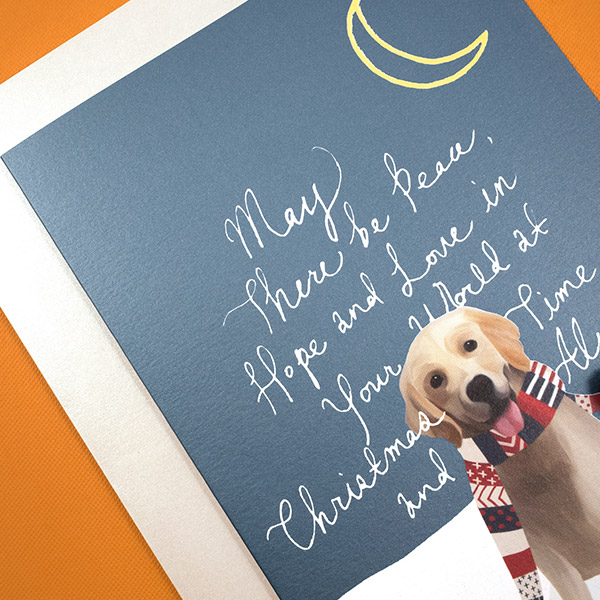 May
There be Peace,
Hope and Love in
Your World at
Christmas Time
and Al